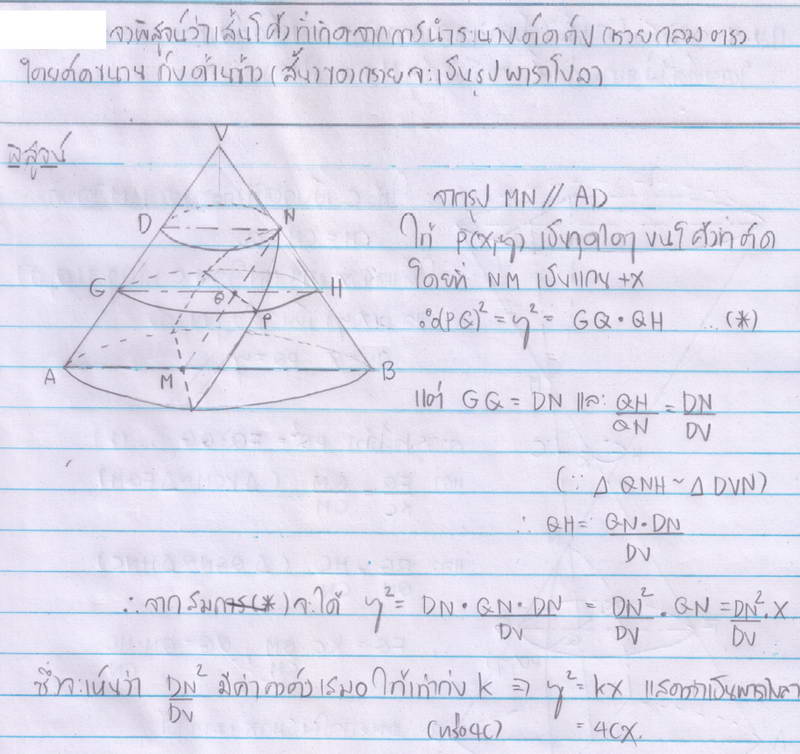 จงพิสูจน์ว่าเส้นโค้งที่เกิดจากการนำระนาบตัดกับกรวยกลมตรง
โดยตัดขนานกับด้านข้าง (สั้น) ของกรวยจะเป็นรูปพาราโบลา
พิสูจน์
V
D
N
G
H
Q
P
A
M
B
จากรูป MN // AD
ให้ P(x,y) เป็นจุดใดๆ บนโค้งที่ตัด
โดยที่ NM เป็นแกน +X
∴ (PQ)² = y² = GQ·QH ...(*)
แต่ GQ = DN และ QH/QN = DN/DV
(∵ Δ QNH ~ Δ DVN)
∴ QH = QN·DN/DV
∴ จากสมการ(*) จะได้ y² = DN·QN·DN/DV = DN²/DV · QN = DN²/DV · x
ซึ่งจะเห็นว่า DN²/DV มีค่าคงตัวเสมอ ให้เท่ากับ k ⇒ y² = kx แสดงว่าเป็นพาราโบลา
(หรือ 4c) = 4cx.